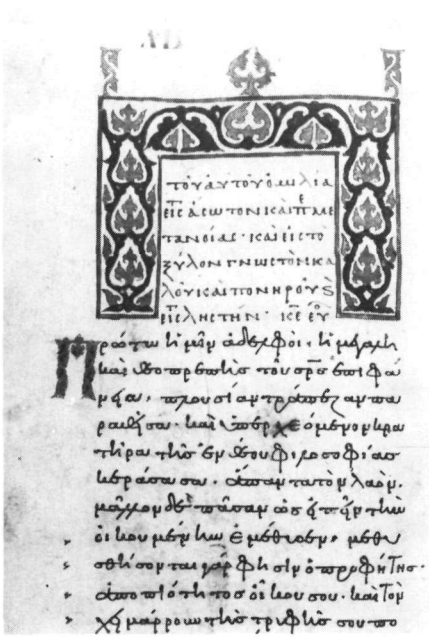 ΤΟΥ ΑΥΤΟΥ ΟΜΙΛΙΑ
ΕΙΣ ΑΣΩΤΟΝ ΚΑΙ Π ΜΕ
ΤΑΝΟΙΑΣ · ΚΑΙ ΕΙΣ ΤΟ
ΞΥΛΟΝ ΓΝΩΣΤΟΝ ΚΑ
ΛΟΥ ΚΑΙ ΠΟΝΗΡΟΥ Ϗ
ΕΙΣ ΛΗΣΤΗΝ · ΚΕ ΕΥ
ἡμῖν ἀδελφοί · ἡ μεγάλη
καὶ θεοπρεπὴς τοῦ σρς ἐπιφά
νεια · πλουσίαν τράπεζαν πα
ραθεῖσα · καὶ ὑπερχεόμενον κρα
τῆρα τῆς ἐνθέου φιλοσοφίας
κεράσασα · ἅπαντα τὸν λαὸν ·
μᾶλλον δὲ πᾶσαν ὡς εἰπεῖν τὴν
οἰκουμένην ἐμέθυσεν · μεθυ
σθήσονται γάρ φησιν ὁ προφήτης ·
ἀπὸ πιότητος οἴκου σου · καὶ τὸν
χειμάρρουν τῆς τρυφῆς σου πο